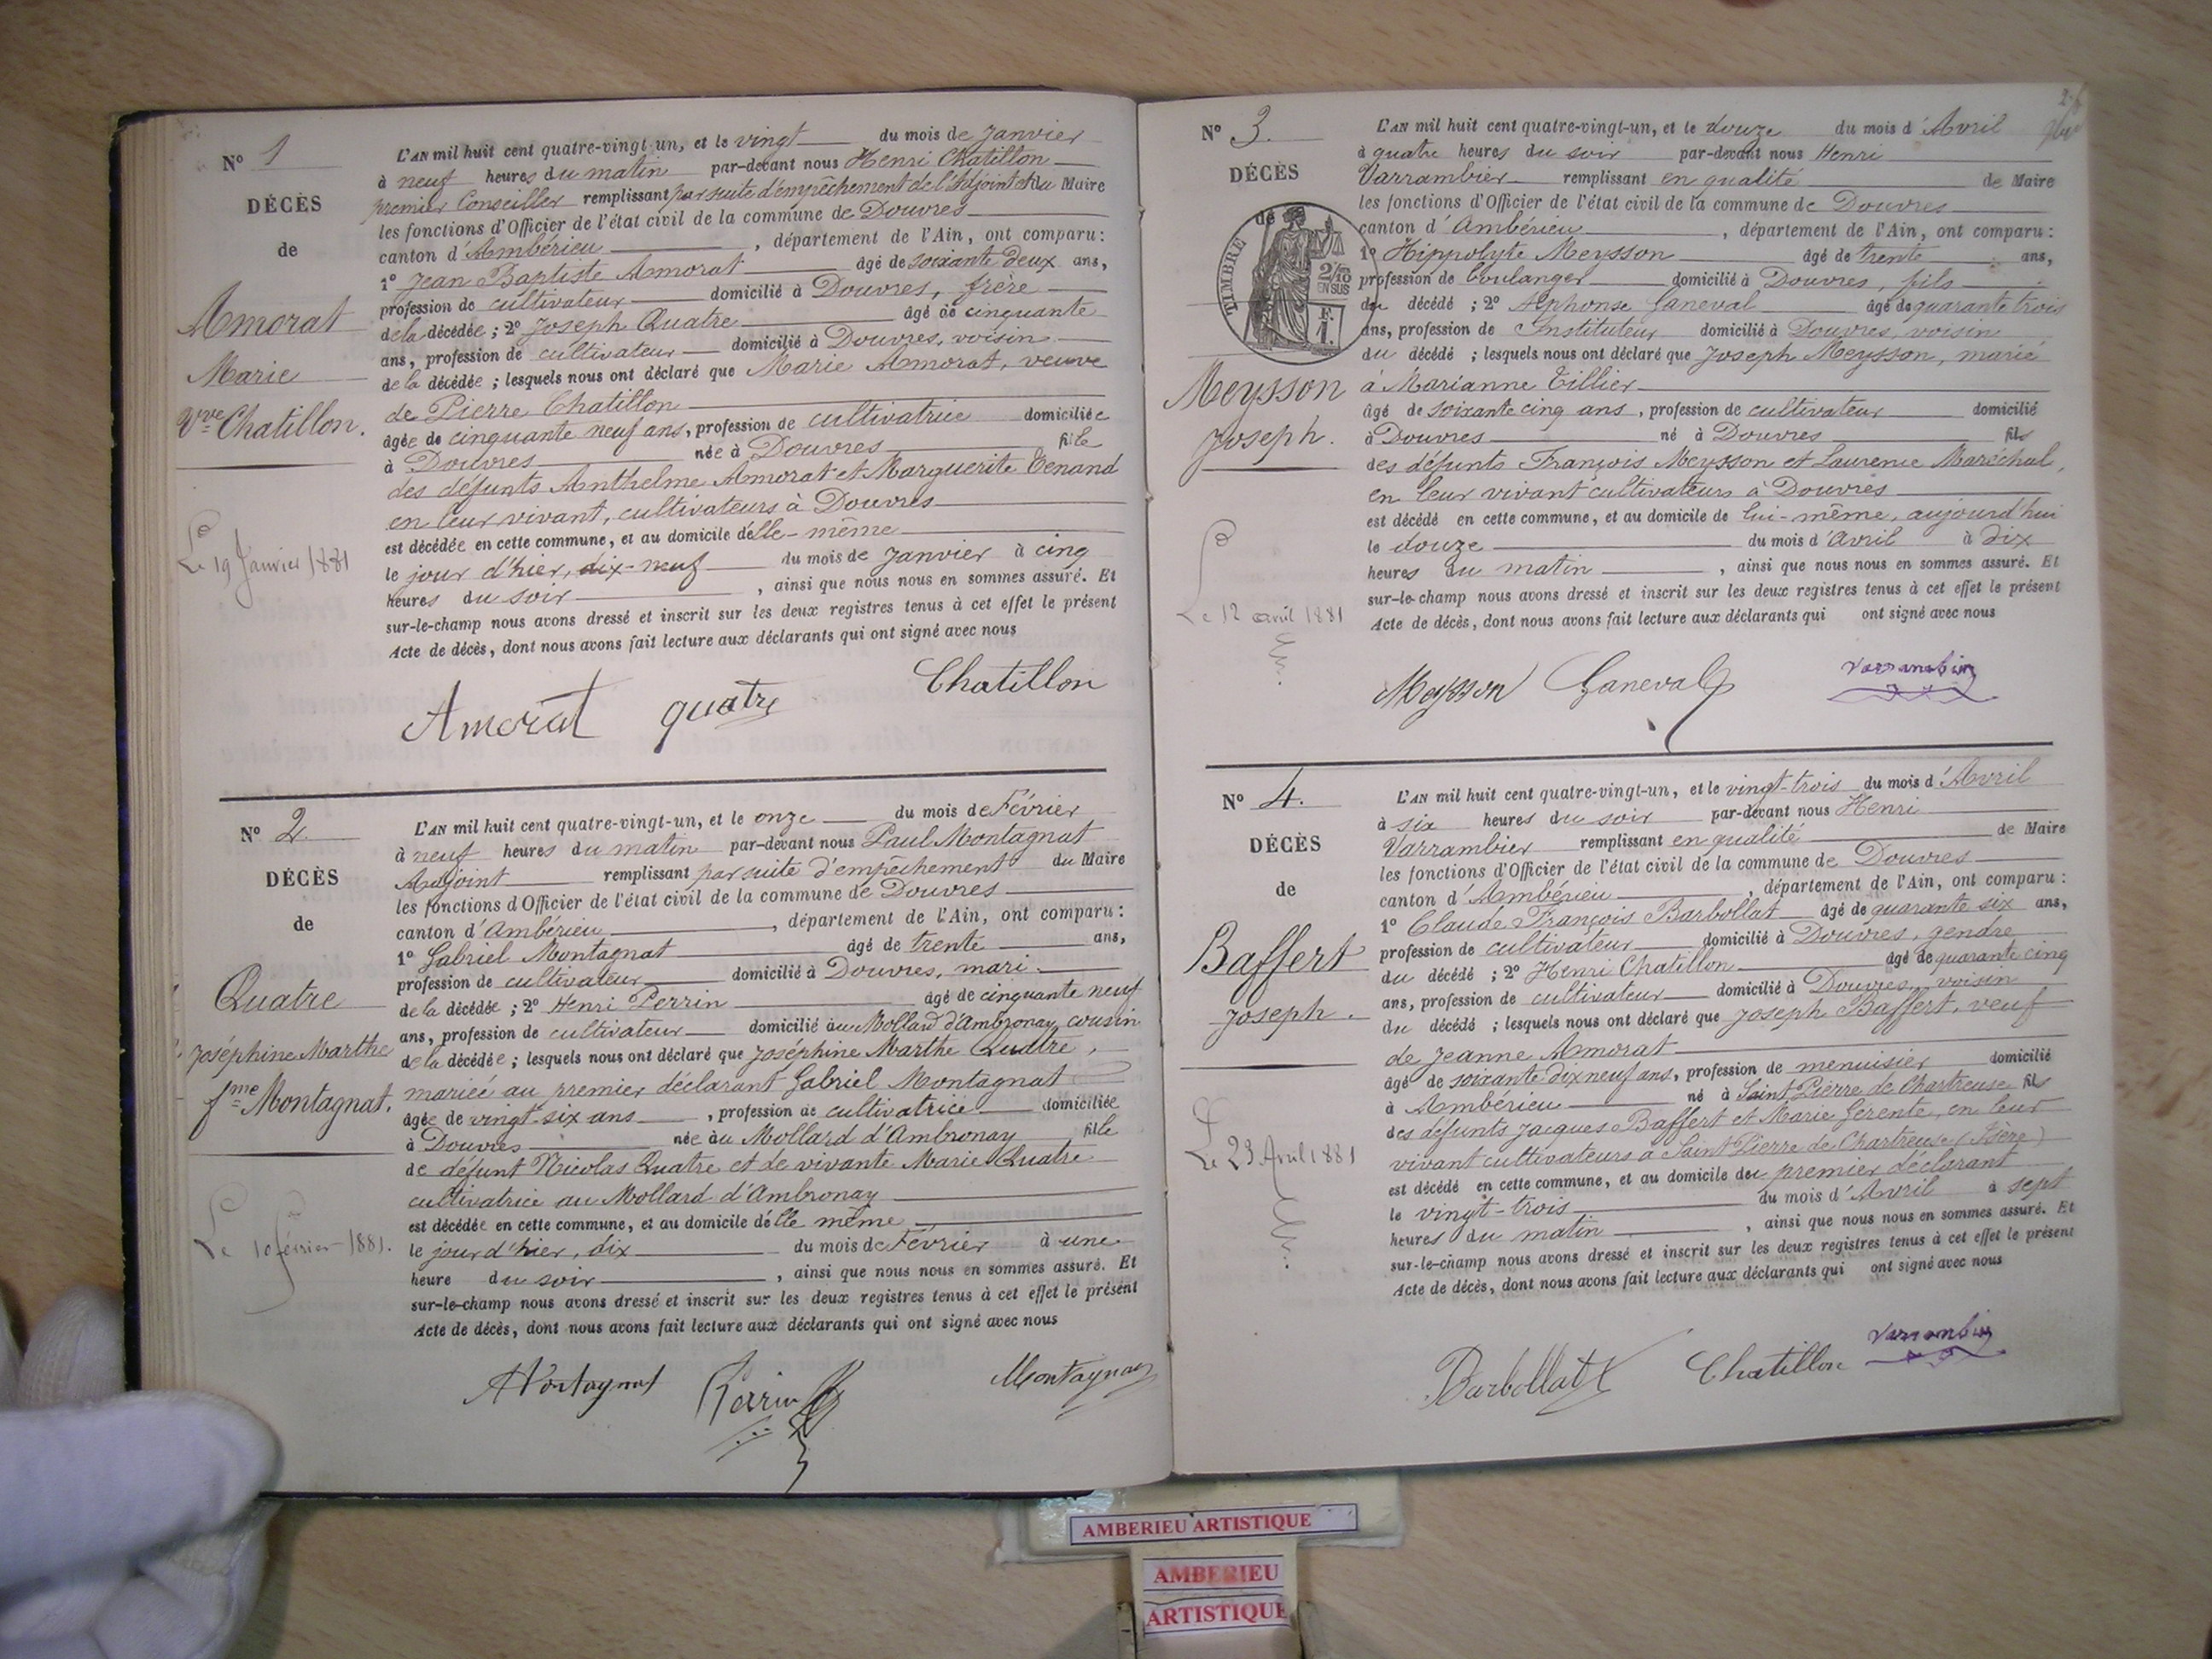 N° 1
DÉCÈS
de
Amorat
Marie
Vve Chatillon.
Le 19 Janvier 1881
L'AN mil huit cent quatre-vingt-un, et le vingt du mois de Janvier
à neuf heures du matin par-devant nous Henri Chatillon
premier Conseiller remplissant par suite d'empêchement de l'Adjoint et du Maire
les fonctions d'Officier de l'état civil de la commune de Douvres
canton d'Ambérieu, département de l'Ain, ont comparu :
1° Jean Baptiste Amorat âgé de soixante deux ans,
profession de cultivateur domicilié à Douvres, frère
de la décédée ; 2° Joseph Quatre âgé de cinquante
ans, profession de cultivateur domicilié à Douvres, voisin
de la décédée ; lesquels nous ont déclaré que Marie Amorat, veuve
de Pierre Chatillon
âgée de cinquante neuf ans, profession de cultivatrice domiciliée
à Douvres née à Douvres fille
des défunts Anthelme Amorat et Marguerite Tenand
en leur vivant, cultivateurs à Douvres
est décédée en cette commune, et au domicile d'elle-même
le jour d'hier, dix-neuf du mois de Janvier à cinq
heures du soir, ainsi que nous nous en sommes assuré. Et
sur-le-champ nous avons dressé et inscrit sur les deux registres tenus à cet effet le présent
Acte de décès, dont nous avons fait lecture aux déclarants qui ont signé avec nous
Amorat quatre Chatillon
N° 2
DÉCÈS
de
Quatre
Joséphine Marthe
fme Montagnat.
Le 10 février 1881.
L'AN mil huit cent quatre-vingt-un, et le onze du mois de Février
à neuf heures du matin par-devant nous Paul Montagnat
Adjoint remplissant par suite d'empêchement du Maire
les fonctions d'Officier de l'état civil de la commune de Douvres
canton d'Ambérieu, département de l'Ain, ont comparu :
1° Gabriel Montagnat âgé de trente ans,
profession de cultivateur domicilié à Douvres, mari
de la décédée ; 2° Henri Perrin âgé de cinquante neuf
ans, profession de cultivateur domicilié au Mollard d'Ambronay, cousin
de la décédée ; lesquels nous ont déclaré que Joséphine Marthe Quatre,
mariée au premier déclarant Gabriel Montagnat
âgée de vingt-six ans, profession de cultivatrice domiciliée
à Douvres née au Mollard d'Ambronay fille
de défunt Nicolas Quatre et de vivante Marie Quatre
cultivatrice au Mollard d'Ambronay
est décédée en cette commune, et au domicile d'elle même
le jour d'hier, dix du mois de Février à une
heure du soir, ainsi que nous nous en sommes assuré. Et
sur-le-champ nous avons dressé et inscrit sur les deux registres tenus à cet effet le présent
Acte de décès, dont nous avons fait lecture aux déclarants qui ont signé avec nous
Montagnat Perrin Montagnat
2
N° 3.
DÉCÈS
de
TIMBRE
2/10
EN SUS
F.
1.
Meysson
Joseph.
Le 12 avril 1881
L'AN mil huit cent quatre-vingt-un, et le douze du mois d'Avril
à quatre heures du soir par-devant nous Henri
Varrambier remplissant en qualité de Maire
les fonctions d'Officier de l'état civil de la commune de Douvres
canton d'Ambérieu, département de l'Ain, ont comparu :
1° Hippolyte Meysson âgé de trente ans,
profession de boulanger domicilié à Douvres, fils
du décédé ; 2° Alphonse Ganeval âgé de quarante trois
ans, profession de Instituteur domicilié à Douvres, voisin
du décédé ; lesquels nous ont déclaré que Joseph Meysson, marié
à Marianne Tillier
âgé de soixante cinq ans, profession de cultivateur domicilié
à Douvres né à Douvres fils
des défunts François Meysson et Laurence Maréchal,
en leur vivant cultivateurs à Douvres
est décédé en cette commune, et au domicile de lui-même, aujourd'hui
le douze du mois d'Avril à dix
heures du matin, ainsi que nous nous en sommes assuré. Et
sur-le-champ nous avons dressé et inscrit sur les deux registres tenus à cet effet le présent
Acte de décès, dont nous avons fait lecture aux déclarants qui ont signé avec nous
Meysson Ganeval Varrambier
N° 4.
DÉCÈS
de
Baffert
Joseph.
Le 23 Avril 1881
L'AN mil huit cent quatre-vingt-un, et le vingt-trois du mois d'Avril
à six heures du soir par-devant nous Henri
Varrambier remplissant en qualité de Maire
les fonctions d'Officier de l'état civil de la commune de Douvres
canton d'Ambérieu, département de l'Ain, ont comparu :
1° Claude François Barbollat âgé de quarante six ans,
profession de cultivateur domicilié à Douvres, gendre
du décédé ; 2° Henri Chatillon âgé de quarante cinq
ans, profession de cultivateur domicilié à Douvres, voisin
du décédé ; lesquels nous ont déclaré que Joseph Baffert, veuf
de Jeanne Amorat
âgé de soixante dix neuf ans, profession de menuisier domicilié
à Ambérieu né à Saint Pierre de Chartreuse fils
des défunts Jacques Baffert et Marie Gerente, en leur
vivant cultivateurs à Saint Pierre de Chartreuse (Isère)
est décédé en cette commune, et au domicile du premier déclarant
le vingt-trois du mois d'Avril à sept
heures du matin, ainsi que nous nous en sommes assuré. Et
sur-le-champ nous avons dressé et inscrit sur les deux registres tenus à cet effet le présent
Acte de décès, dont nous avons fait lecture aux déclarants qui ont signé avec nous
Barbollat Chatillon Varrambier
AMBERIEU ARTISTIQUE
AMBERIEU
ARTISTIQUE